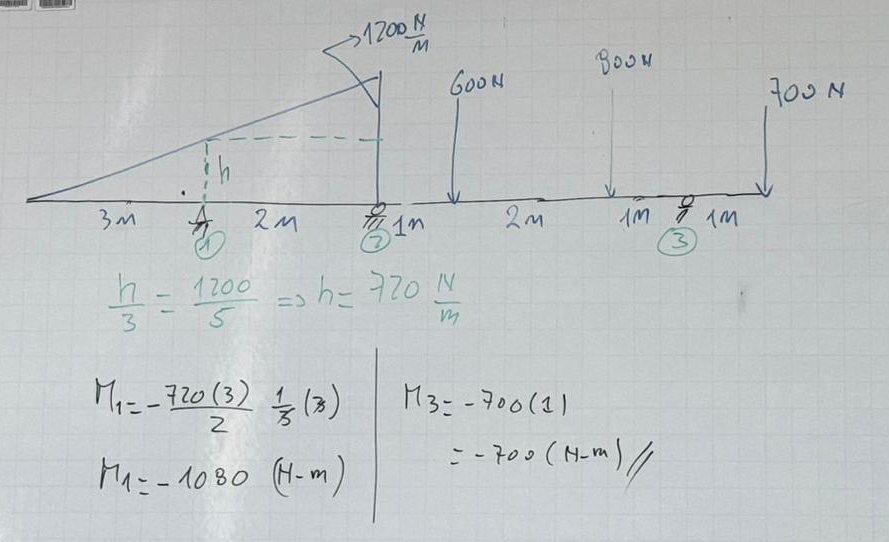 1200 N/m
600N
800N
700 N
h
3m 2m 1m 2m 1m 1m
1 2 3
h/3 = 1200/5 => h = 720 N/m
M1 = - 720(3)/2 1/3 (3)
M1 = - 1080 (N-m)
M3 = - 700(1)
= - 700 (N-m) //